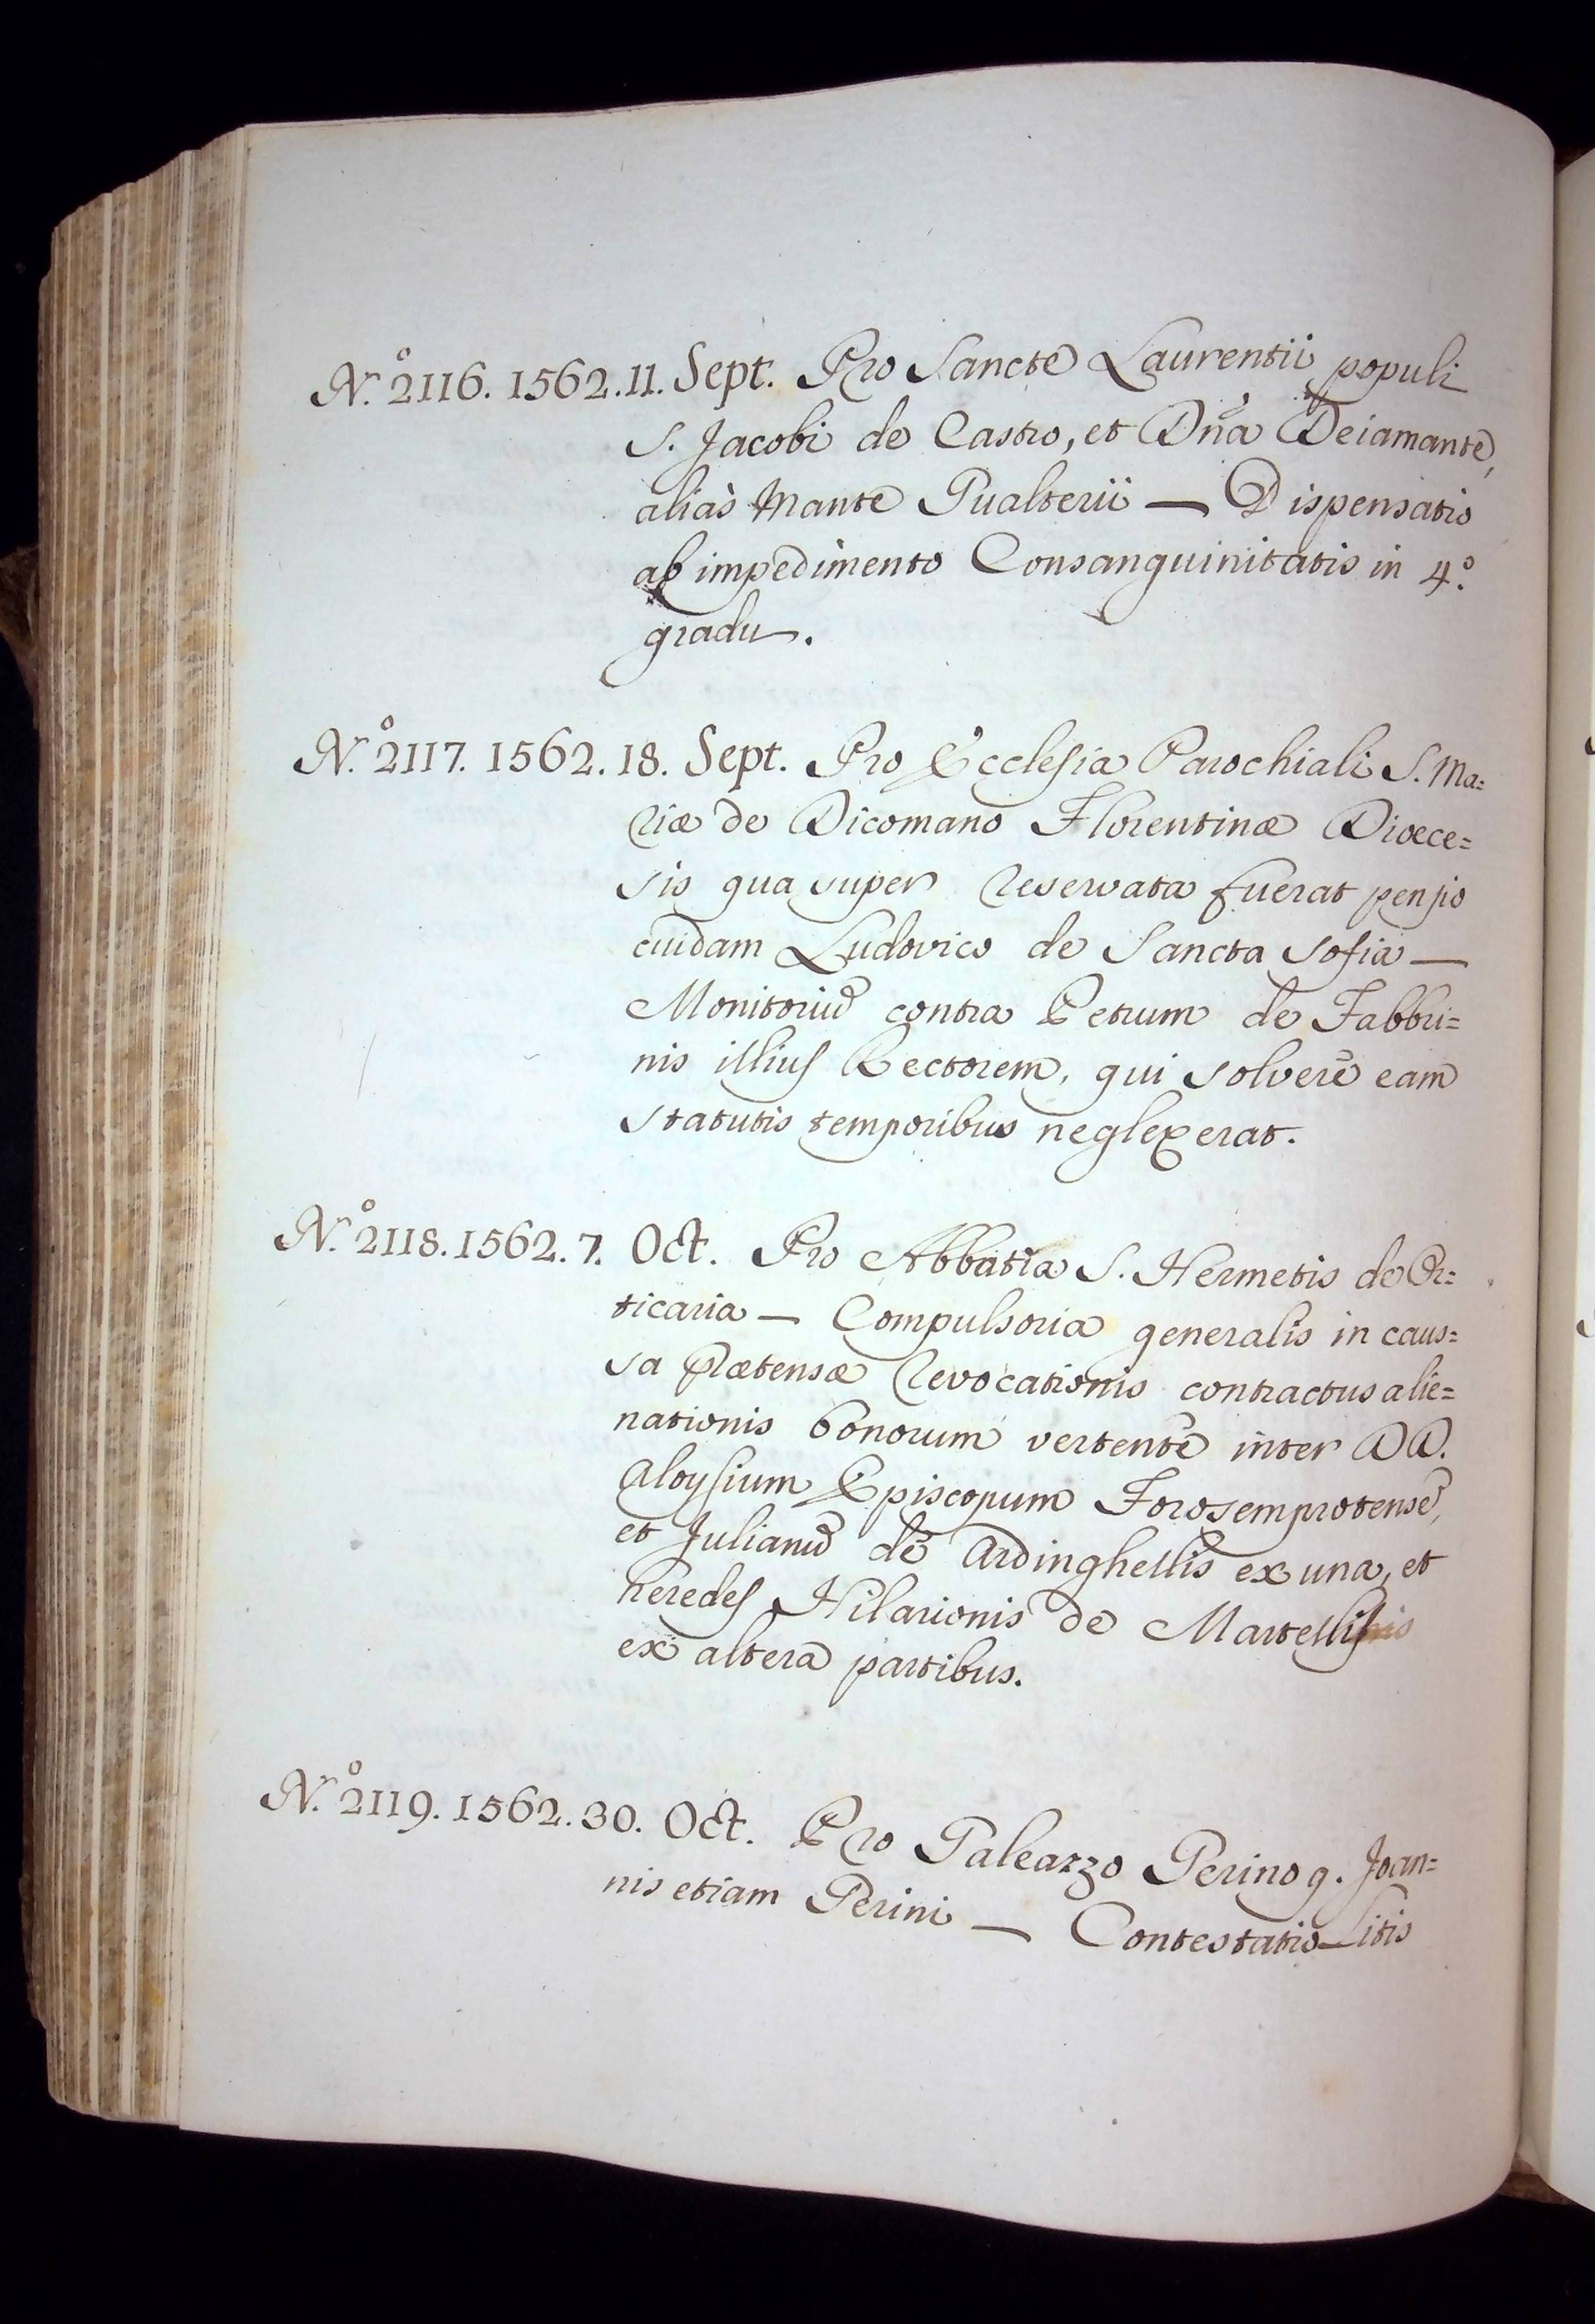 N.º 2116. 1562. 11. Sept. Pro Sancte Laurentii populi
S. Jacobi de Castro, et Dña Deiamante,
aliàs Mante Gualterii — Dispensatio
ab impedimento Consanguinitatis in 4.º
gradu.
N.º 2117. 1562. 18. Sept. Pro Ecclesia Parochiali S. Ma=
riæ de Dicomano Florentinæ Diœce=
sis qua super reservata fuerat pensio
cuidam Ludovico de Sancta Sofia —
Monitoriũ contra Petrum de Fabbri=
nis illius Rectorem, qui solvere eam
statutis temporibus neglexerat.
N.º 2118. 1562. 7. Oct. Pro Abbatia S. Hermetis de Or=
ticaria — Compulsoria generalis in caus=
sa prætensæ revocationis contractus alie=
nationis bonorum vertente inter DD.
Aloysium Episcopum Forosemprotensẽ,
et Julianũ de Ardinghellis ex una, et
heredes Hilarionis de Martellis
ex altera partibus.
N.º 2119. 1562. 30. Oct. Pro Galeazzo Gerino q. Joan=
nis etiam Gerini — Contestatio Litis